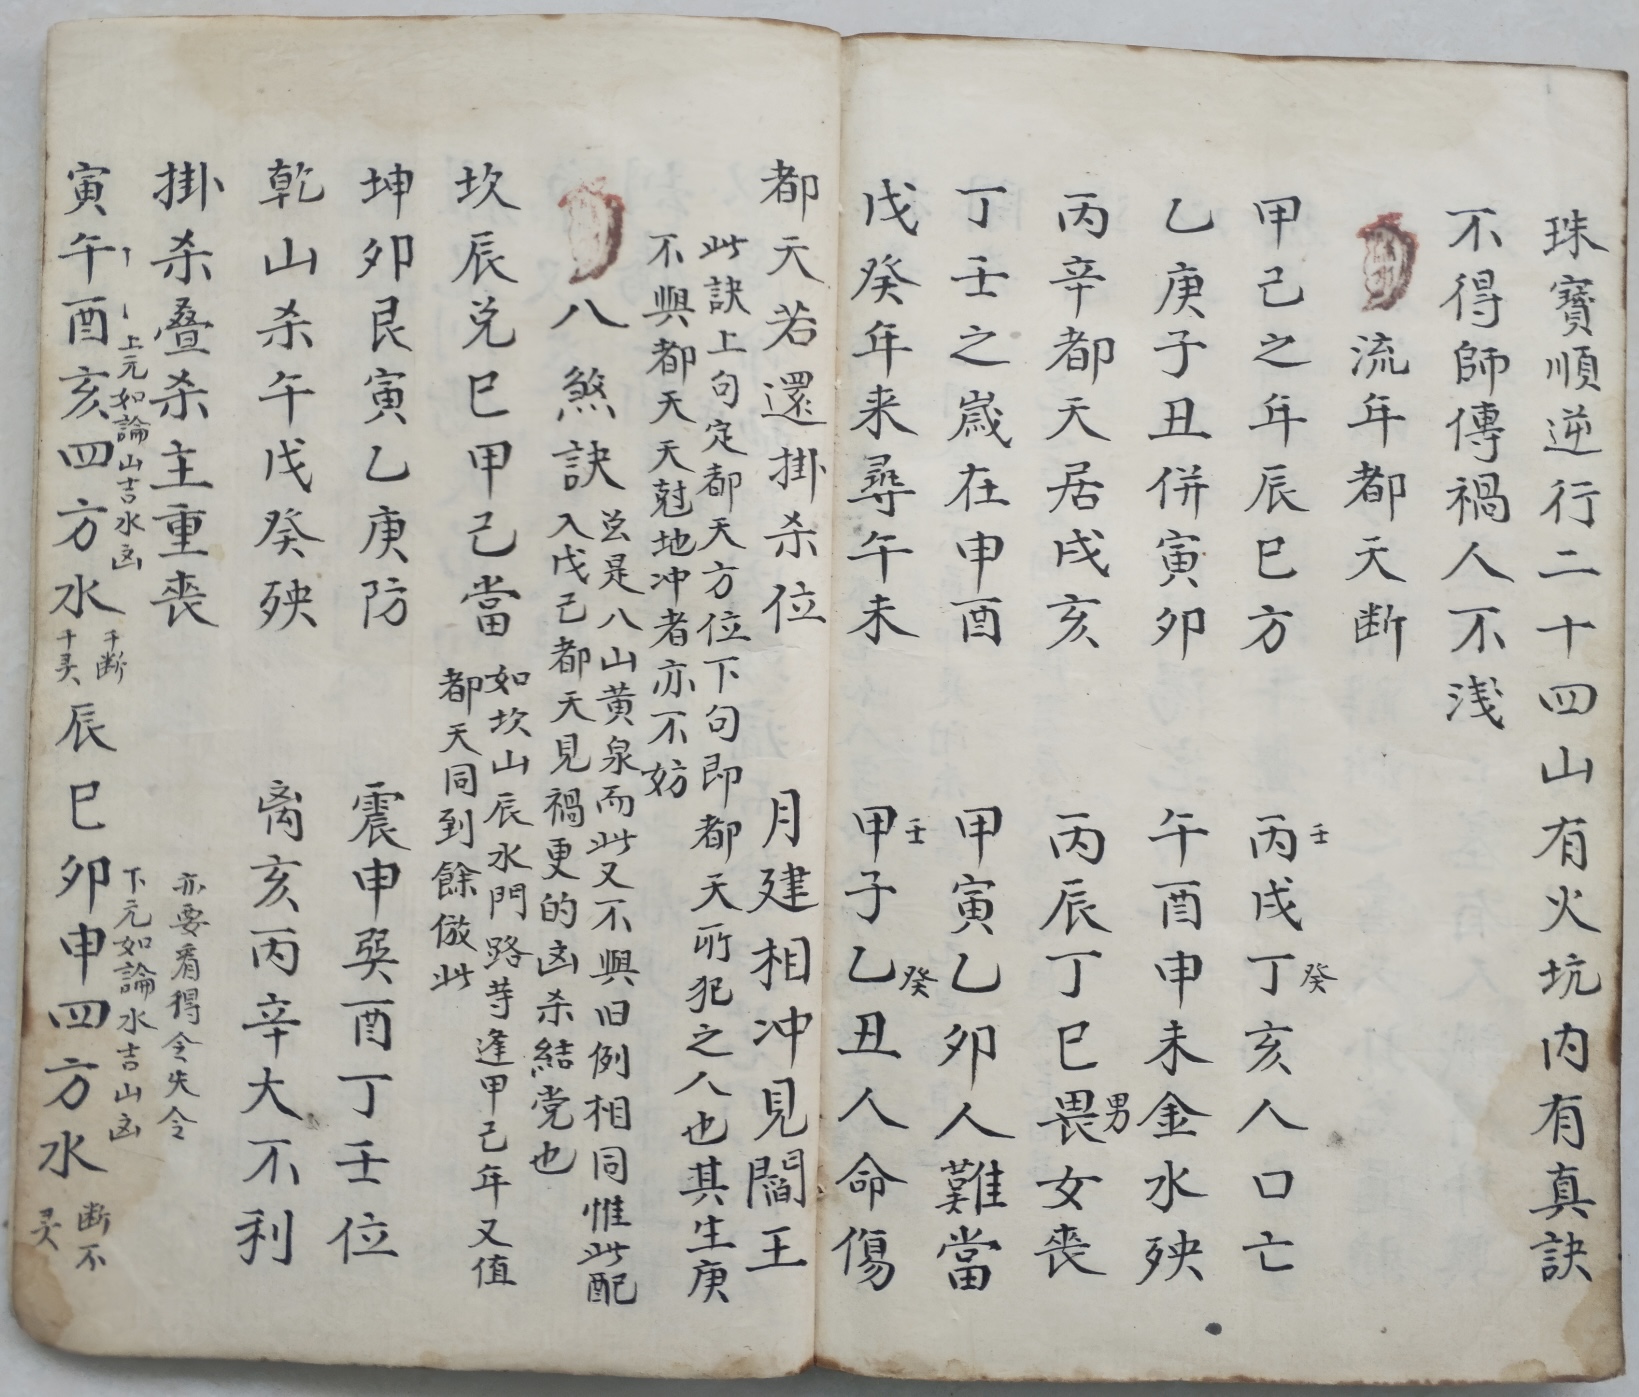 珠寶順逆行二十四山有火坑内有真訣
不得師傳禍人不浅
流年都天断
甲己之年辰巳方 丙壬戌丁癸亥人口亡
乙庚子丑併寅卯 午酉申未金水殃
丙辛都天居戌亥 丙辰丁巳畏男女丧
丁壬之歲在申酉 甲寅乙卯人難當
戊癸年来尋午未 甲壬子乙癸丑人命傷
都天若還掛杀位 月建相冲見閻王
此訣上句定都天方位下句即都天所犯之人也其生庚
不與都天天尅地冲者亦不妨
八煞訣
岦是八山黄泉而此又不與旧例相同惟此配
入戊己都天見禍更的凶杀結党也
坎辰兑巳甲己當
如坎山辰水門路苛逢甲己年又值
都天同到餘倣此
坤卯艮寅乙庚防 震申巽酉丁壬位
乾山杀午戊癸殃 离亥丙辛大不利
掛杀叠杀主重丧
亦要看得令失令
上元如論山吉水凶
下元如論水吉山凶
寅午酉亥四方水 千断十灵 辰巳卯申四方水 断不灵